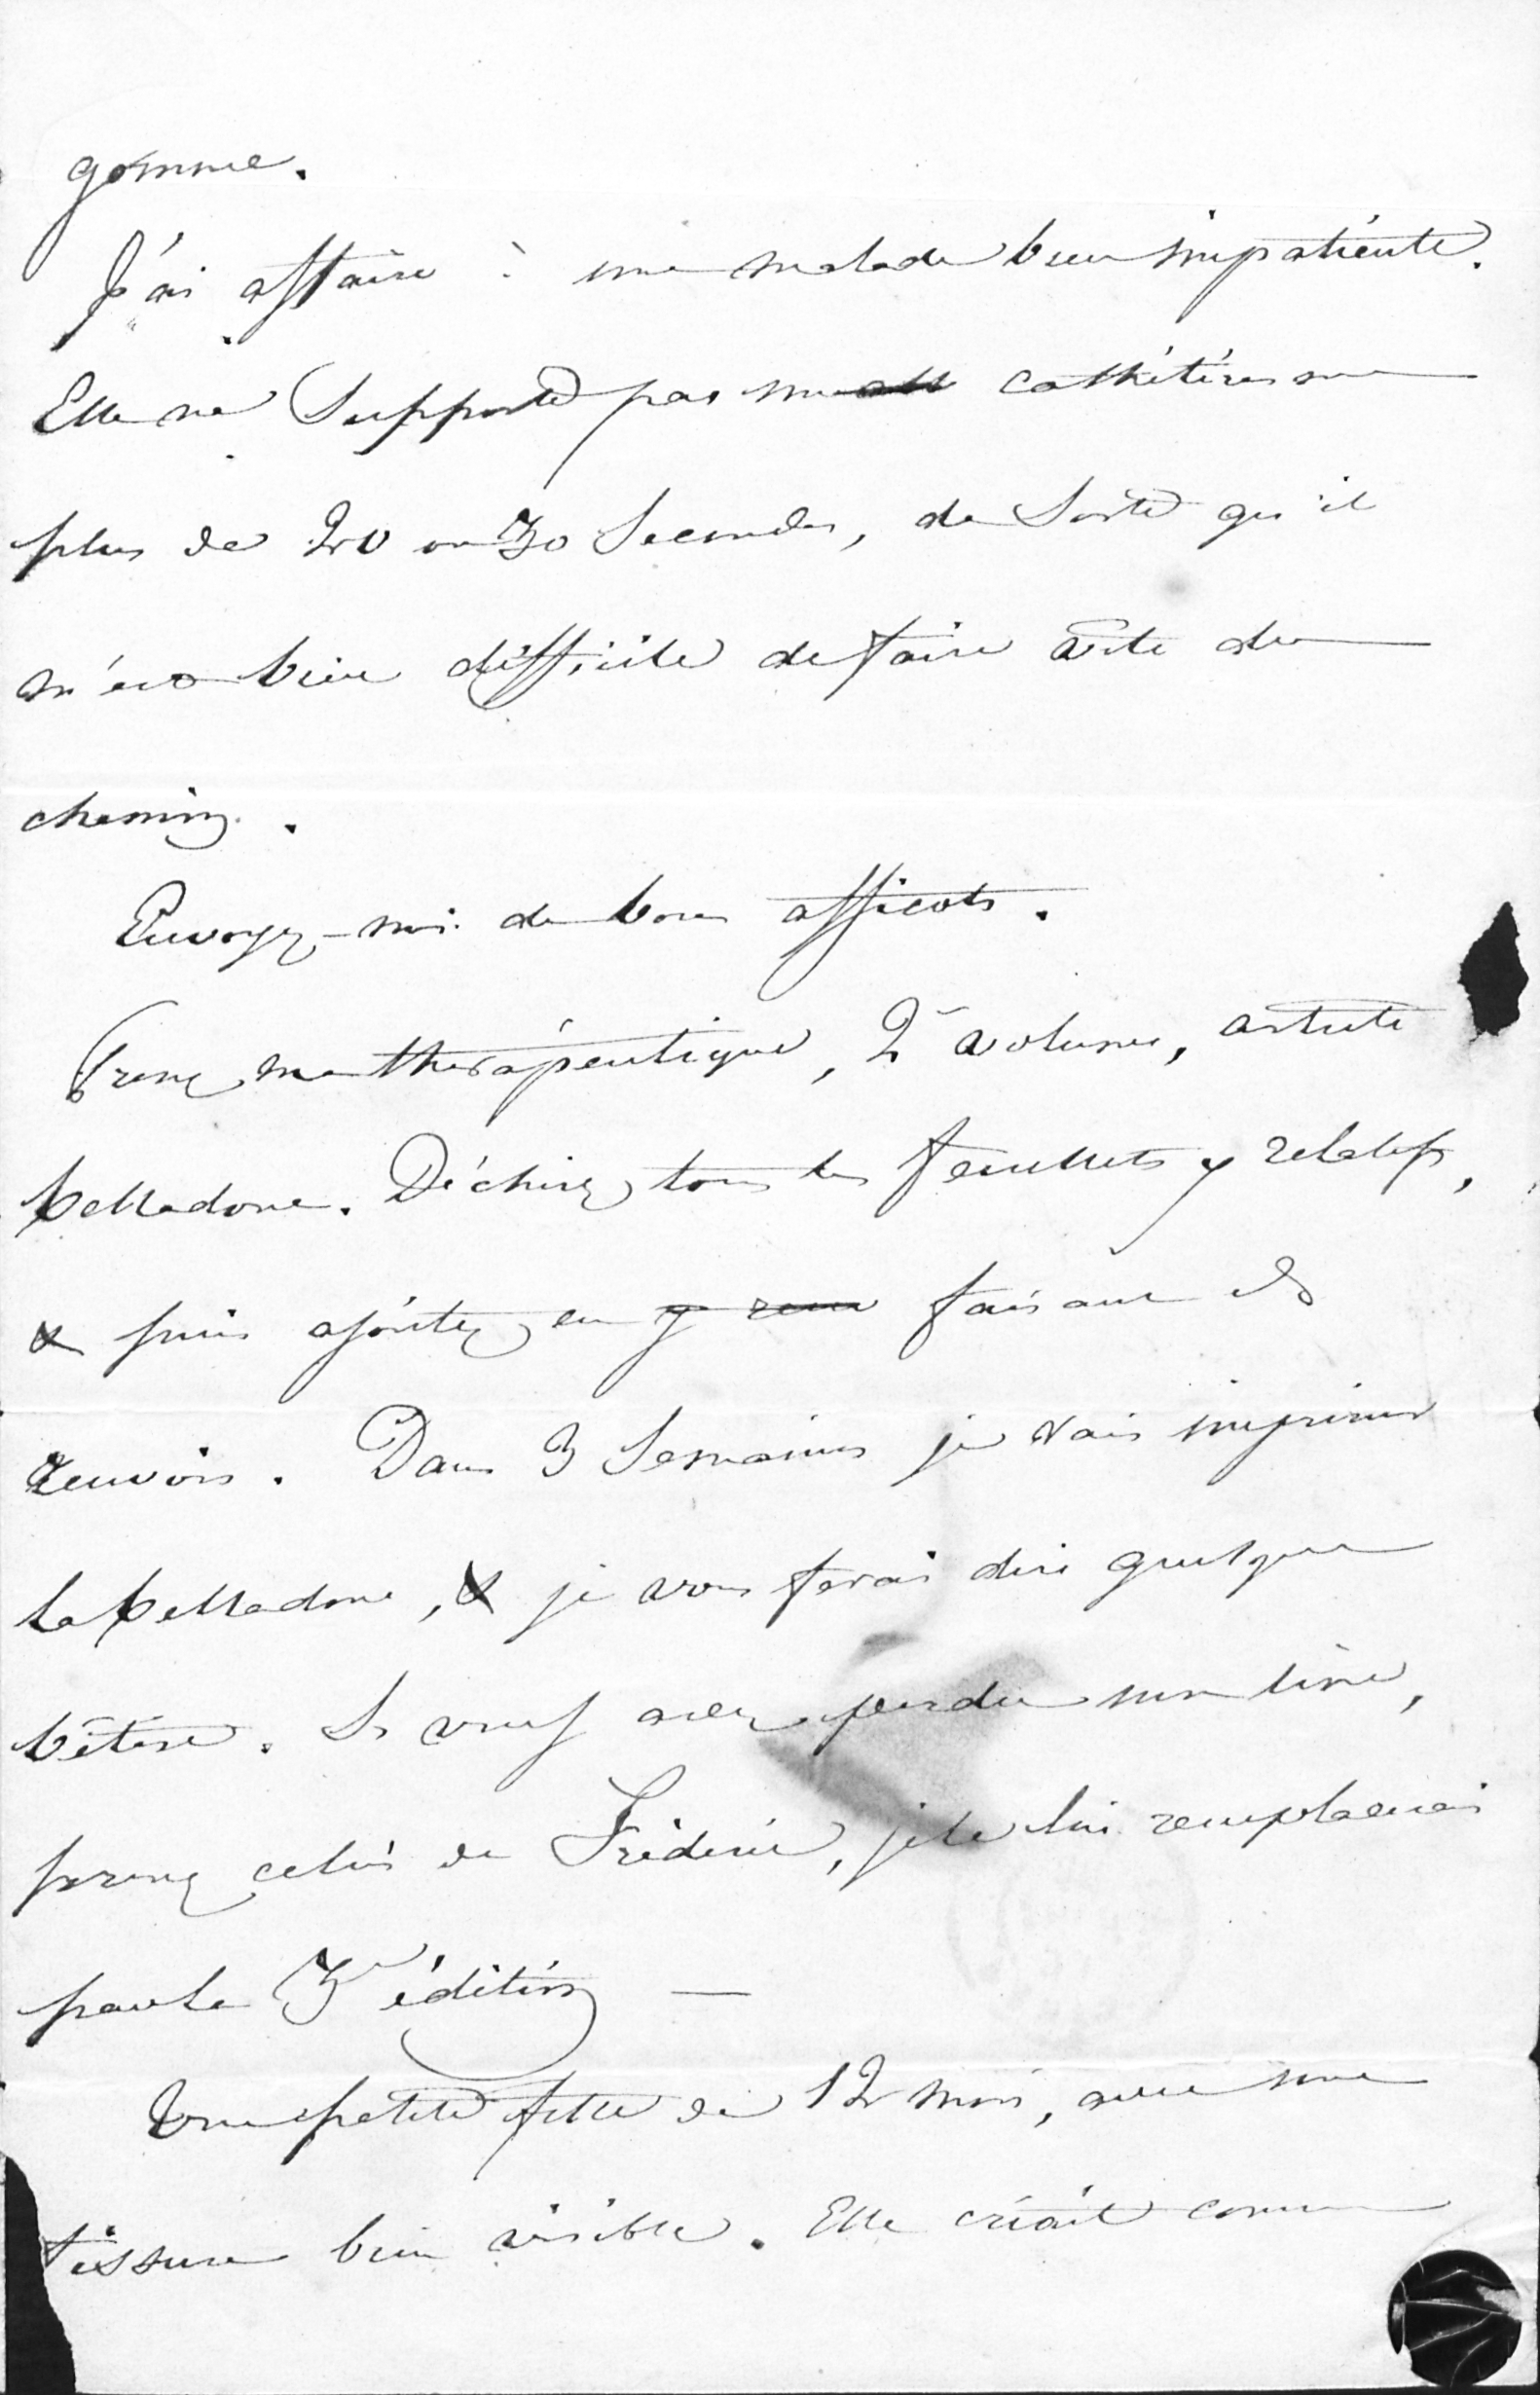 gomme.
J'ai affaire à une malade bien impatiente.
Elle ne supporte pas un cathétérisme
plus de 20 ou 30 secondes, de sorte qu'il
m'est bien difficile de faire vite du
chemin.
Envoyez-moi de bons afficots.
Prenez ma thérapeutique, 2e volume, article
belladone. Déchirez tous les feuillets y relatifs,
& puis ajoutez en y faisant des
renvois. Dans 3 semaines je vais imprimer
la belladone, & je vous ferais dire quelque
bêtise. Si vous avez perdu mon livre,
prenez celui de Frédéric, je le lui remplacerai
par la 3e édition —
Une petite fille de 12 mois, avec une
fissure bien visible. Elle criait comme